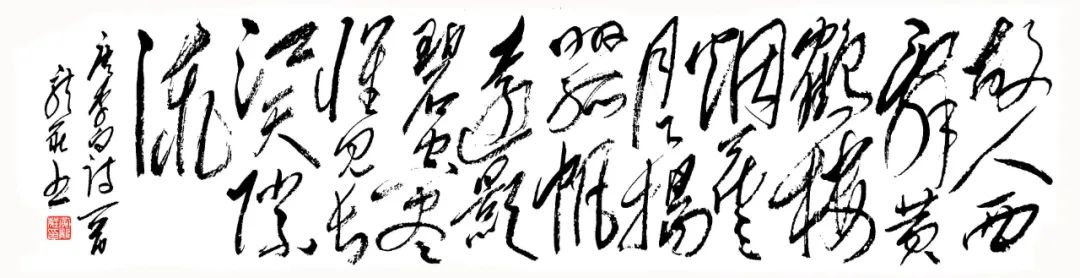 故人西
辞黄
鹤楼
烟花三
月下扬
州孤帆
远影
碧空尽
惟见长
江天际
流
唐李白诗一首
书